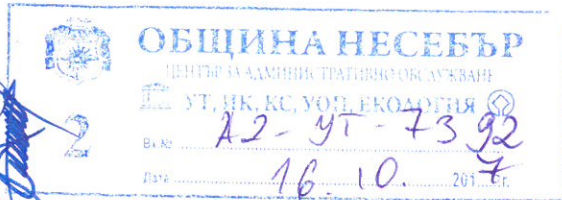 ОБЩИНА НЕСЕБЪР
ЦЕНТЪР ЗА АДМИНИСТРАТИВНО ОБСЛУЖВАНЕ
УТ, ИК, КС, УОП, ЕКОЛОГИЯ
2
Вх.№ А2-УТ-7392
Дата 16.10. 2017г.